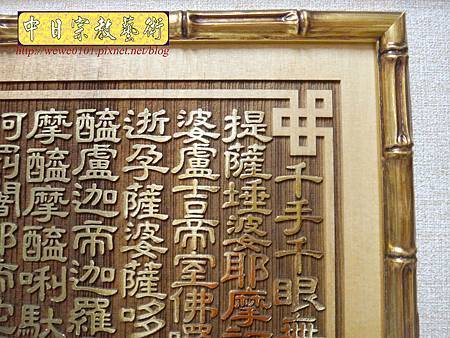 中日宗教藝術
(http://wewe0101.pixnet.net/blog)
千手千眼無
提薩埵婆耶摩訶
婆盧吉帝室佛
逝孕薩婆薩哆
醯盧迦帝迦羅
摩醯摩醯唎馱
罰闍耶帝